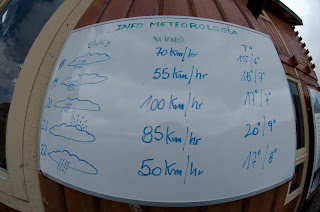 INFO METEOROLOGÍA
T°
18 70 Km/hr 15°/6°
19 55 Km/hr 18°/7°
20 100 Km/hr 17°/7°
21 85 Km/hr 20°/9°
22 50 Km/hr 17°/8°